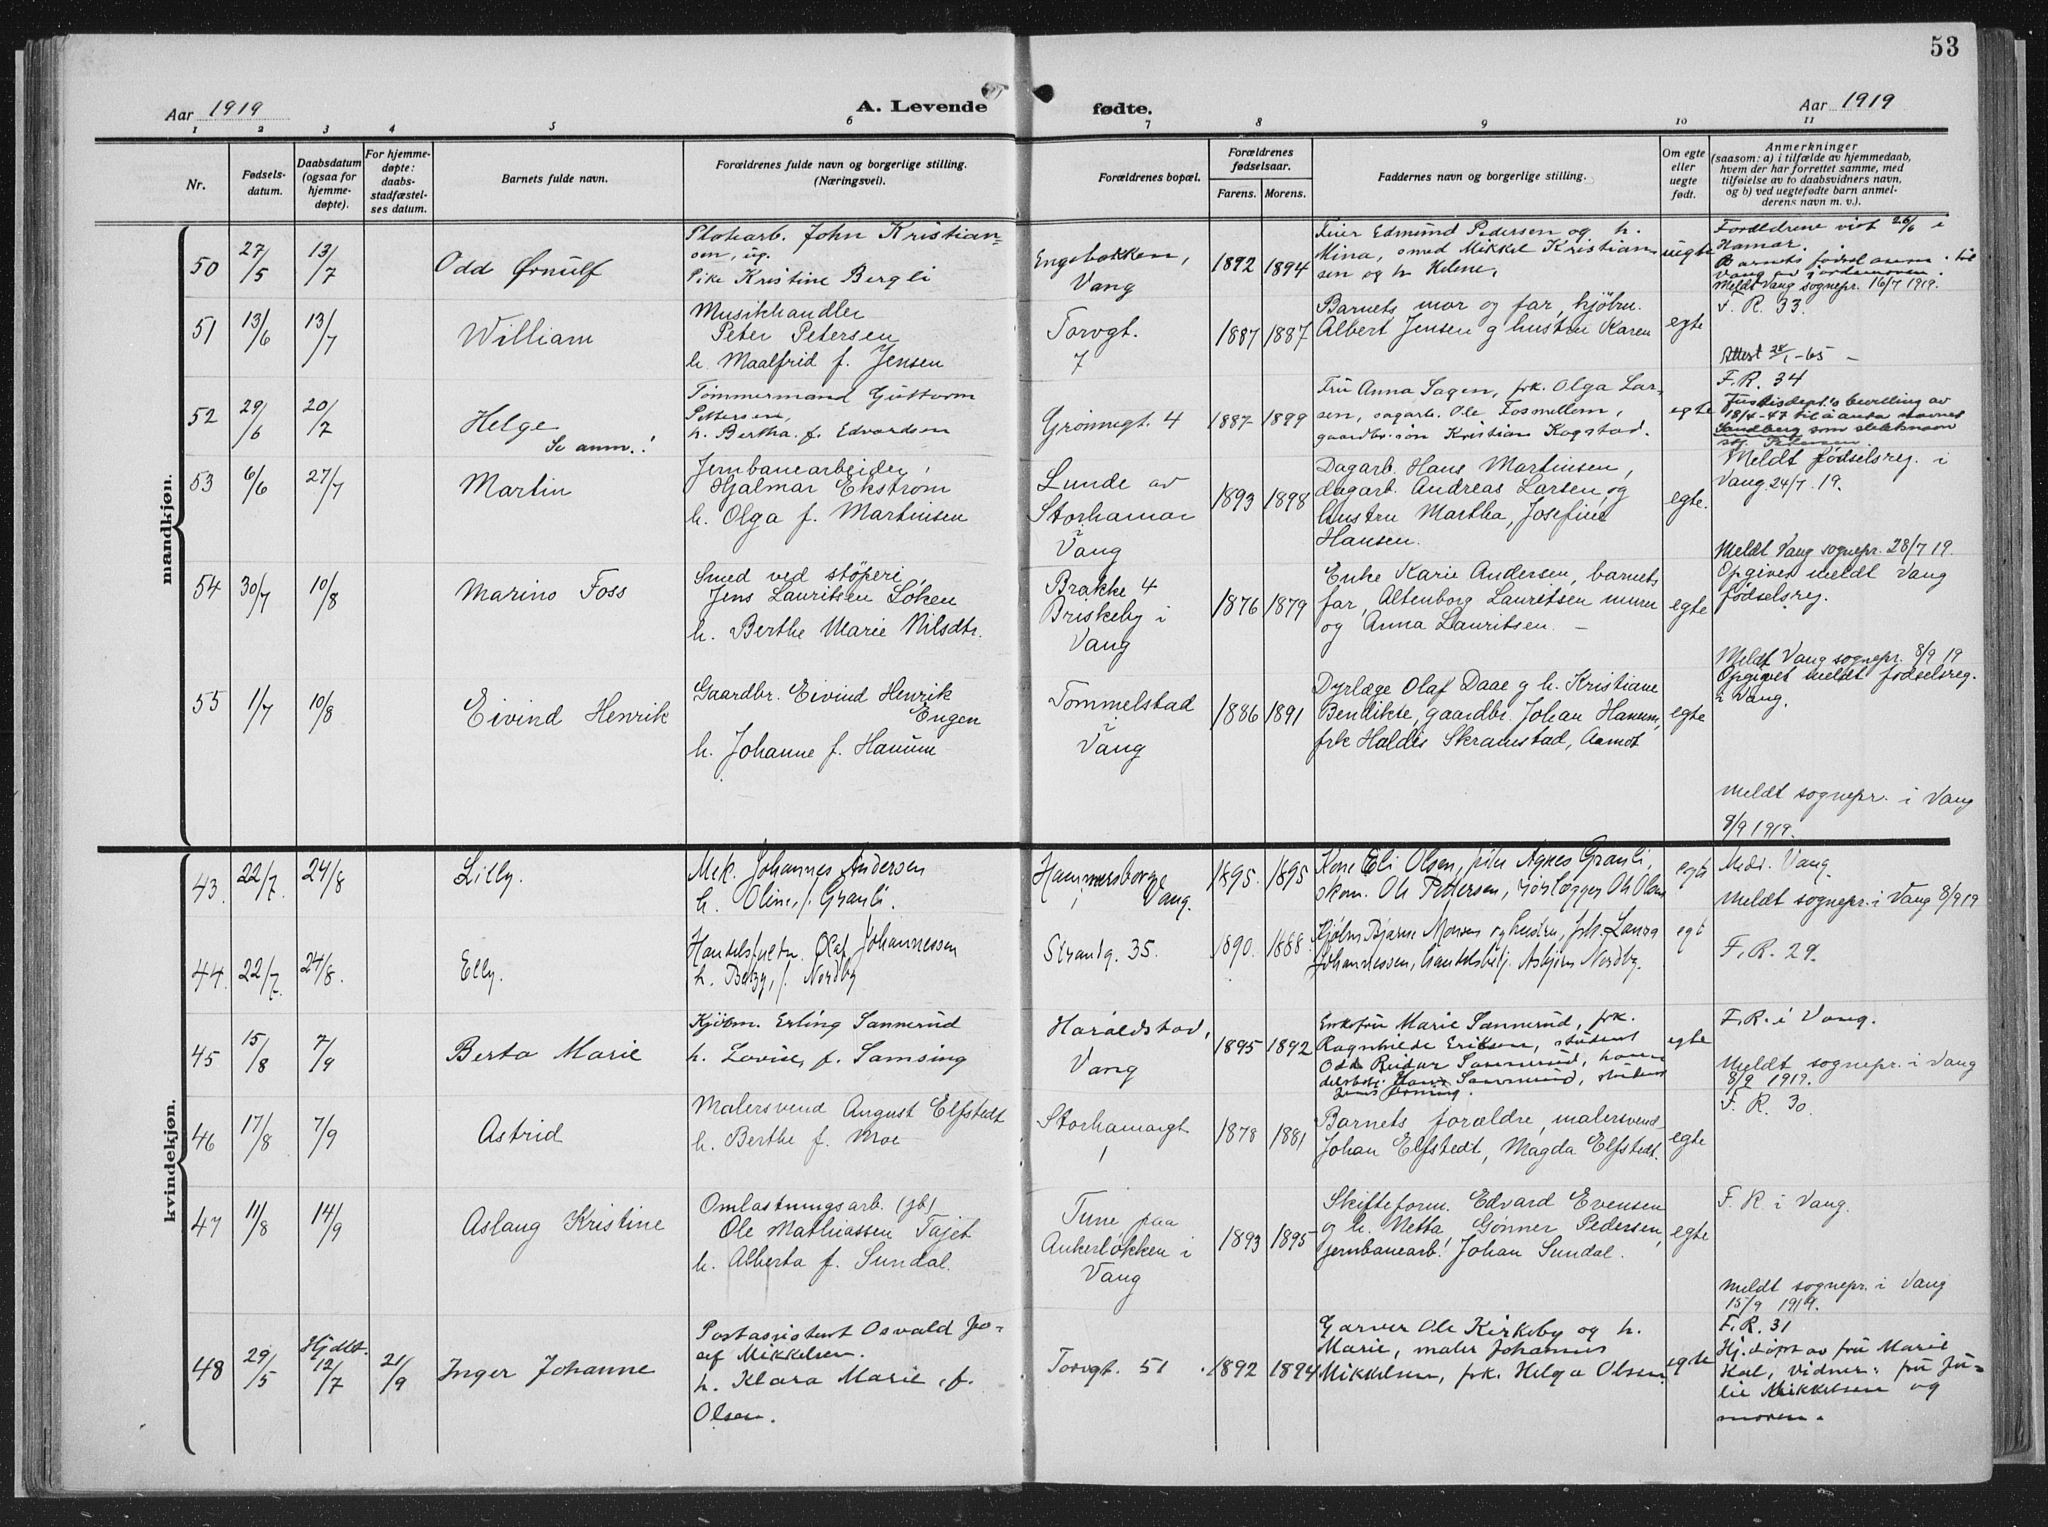 53
Aar 1919
A. Levende fødte.
Aar 1919
1 2 3 4 5 6 7 8 9 10 11
Nr.
Fødsels-
datum.
Daabsdatum
(ogsaa for
hjemme-
døpte).
For hjemme-
døpte:
daabs-
stadfæstel-
ses datum.
Barnets fulde navn.
Forældrenes fulde navn og borgerlige stilling.
(Næringsvei).
Forældrenes bopæl.
Forældrenes
fødselsaar.
Farens. Morens.
Faddernes navn og borgerlige stilling.
Om egte
eller
uegte
født.
Anmerkninger
(saasom: a) i tilfælde av hjemmedaab,
hvem der har forrettet samme, med
tilføielse av to daabsvidners navn,
og b) ved uegtefødte barn anmel-
derens navn m. v.).
mandkjøn.
50 27/5 13/7 Odd Ørnulf
Kristian-
sen, ug.
Pike Kristine Bergli
Vang
1892 1894
Edmund Pedersen og h.
Mina, smed Mikkel Kristian
sen og h. Helene,
uegte
Forældrene viet 26/6 i
Hamar.
Meldt Vang sognepr. 16/7 1919.
51 13/6 13/7 William
Musikhandler
Peter Petersen
h. Maalfrid f. Jensen
Torvgt.
7
1887 1887
Barnets mor og far, kjøbm.
Albert Jensen g hustru Karen
egte
F. R. 33.
Attest 28/1-65 –
52 29/6 20/7 Helge
Se anm.!
Tømmermand Guttorm
Pettersen,
h. Bertha f. Edvardsen
Grønnegt. 4
1887 1899
Fru Anna Sagen, frk. Olga Lar-
sen, sagarb. Ole Fosmellem,
gaardbr.søn Kristian Kogstad.
egte
F.R. 34
Justisdept.s bevilling av
18/4-47 til å anta navnet
Sandberg som slektsnavn
53 6/6 27/7 Martin
Jernbanearbeider
Hjalmar Ekstrøm
h. Olga f. Martinsen
Lunde av
Storhamar
i
Vang
1893 1898
Dagarb. Hans Martinsen,
dagarb. Andreas Larsen og
hustru Martha, Josefine
Hansen.
egte.
Meldt fødselsreg. i
Vang 24/7 19.
Meldt Vang sognepr. 28/7 19.
54 30/7 10/8 Marino Foss
Smed ved støperi
Jens Lauritsen Løken
h. Berthe Marie Nilsdtr.
Brakke 4
Briskeby i
Vang
1876 1879
Enke Karie Andersen, barnets
far, Altenborg Lauritsen murer
og Anna Lauritsen. –
egte
Opgives meldt Vang
fødselsreg.
Meldt Vang sognepr. 8/9 19
55 1/7 10/8 Eivind Henrik
Gaardbr. Eivind Henrik
Engen
h. Johanne f. Hanum
Tommelstad
i
Vang
1886 1891
Dyrlæge Olaf Daae g h. Kristiane
Bendikte, gaardbr. Johan Hanum,
frk Haldis Skramstad, Aamot
egte
Opgivet meldt fødselsreg.
i Vang.
Meldt sognepr. i Vang
8/9 1919.
kvindekjøn.
43 22/7. 24/8 Lilly.
Mek. Johannes Andersen
h. Oline, f. Granli.
Hammersborg
Vang.
1895. 1895
Kone Eli Olsen, pike Agnes Granli,
skom. Ole Pettersen, rørlegger Ole Olsen
egte
Vang.
Meldt sognepr. i Vang 8/9 19
44. 22/7. 24/8. Elly.
Olaf Johannessen
f. Nordby
Strandg. 35.
1890. 1888.
Kjøbm. Bjarne Monsen og hustru, frk. Laura
Johannessen, handelsbetj. Asbjørn Nordby.
egt
F. R. 29.
45 15/8 7/9 Berta Marie
Kjøbm. Erling Sannerud
h. Lovise, f. Samsing
Haraldstad,
Vang
1895 1892
Enkefru Marie Sannerud, frk.
Ragnhilde Eriksen, student
Odd Reidar Sannerud, han-
delsbetj. Hans Sannerud, student
egte
F. R. i Vang.
Meldt sognepr. i Vang
8/9 1919.
46 17/8 7/9 Astrid
Malersvend August Elfstedt
h. Berthe f. Moe
Storhamargt
1
1878 1881
Barnets forældre, malersvend
Johan Elfstedt, Magda Elfstedt.
egte
F. R. 30.
47 11/8 14/9 Aslaug Kristine
Omlastningsarb. (jb)
Ole Mathiassen Tajet
h. Alberta f. Sundal.
Tune paa
Ankerløkken i
Vang
1893 1895
Skifteform. Edvard Evensen
og h. Netta, Gønner Pedersen,
jernbanearb. Johan Sundal.
egte
F. R. i Vang.
Meldt sognepr. i Vang
15/9 1919.
48 29/5 Hjdbt. 12/7 21/9 Inger Johanne
Postassistent Osvald Jo-
sef Mikkelsen.
h. Klara Marie, f.
Olsen.
Torvgt. 51
1892 1894
Garver Ole Kirkeby og h.
Marie, maler Johannes
Mikkelsen, frk. Helga Olsen.
egte
F. R. 31
Hj.døpt av fru Marie
Hal, vidner: fru Ju-
lie Mikkelsen og
moren.